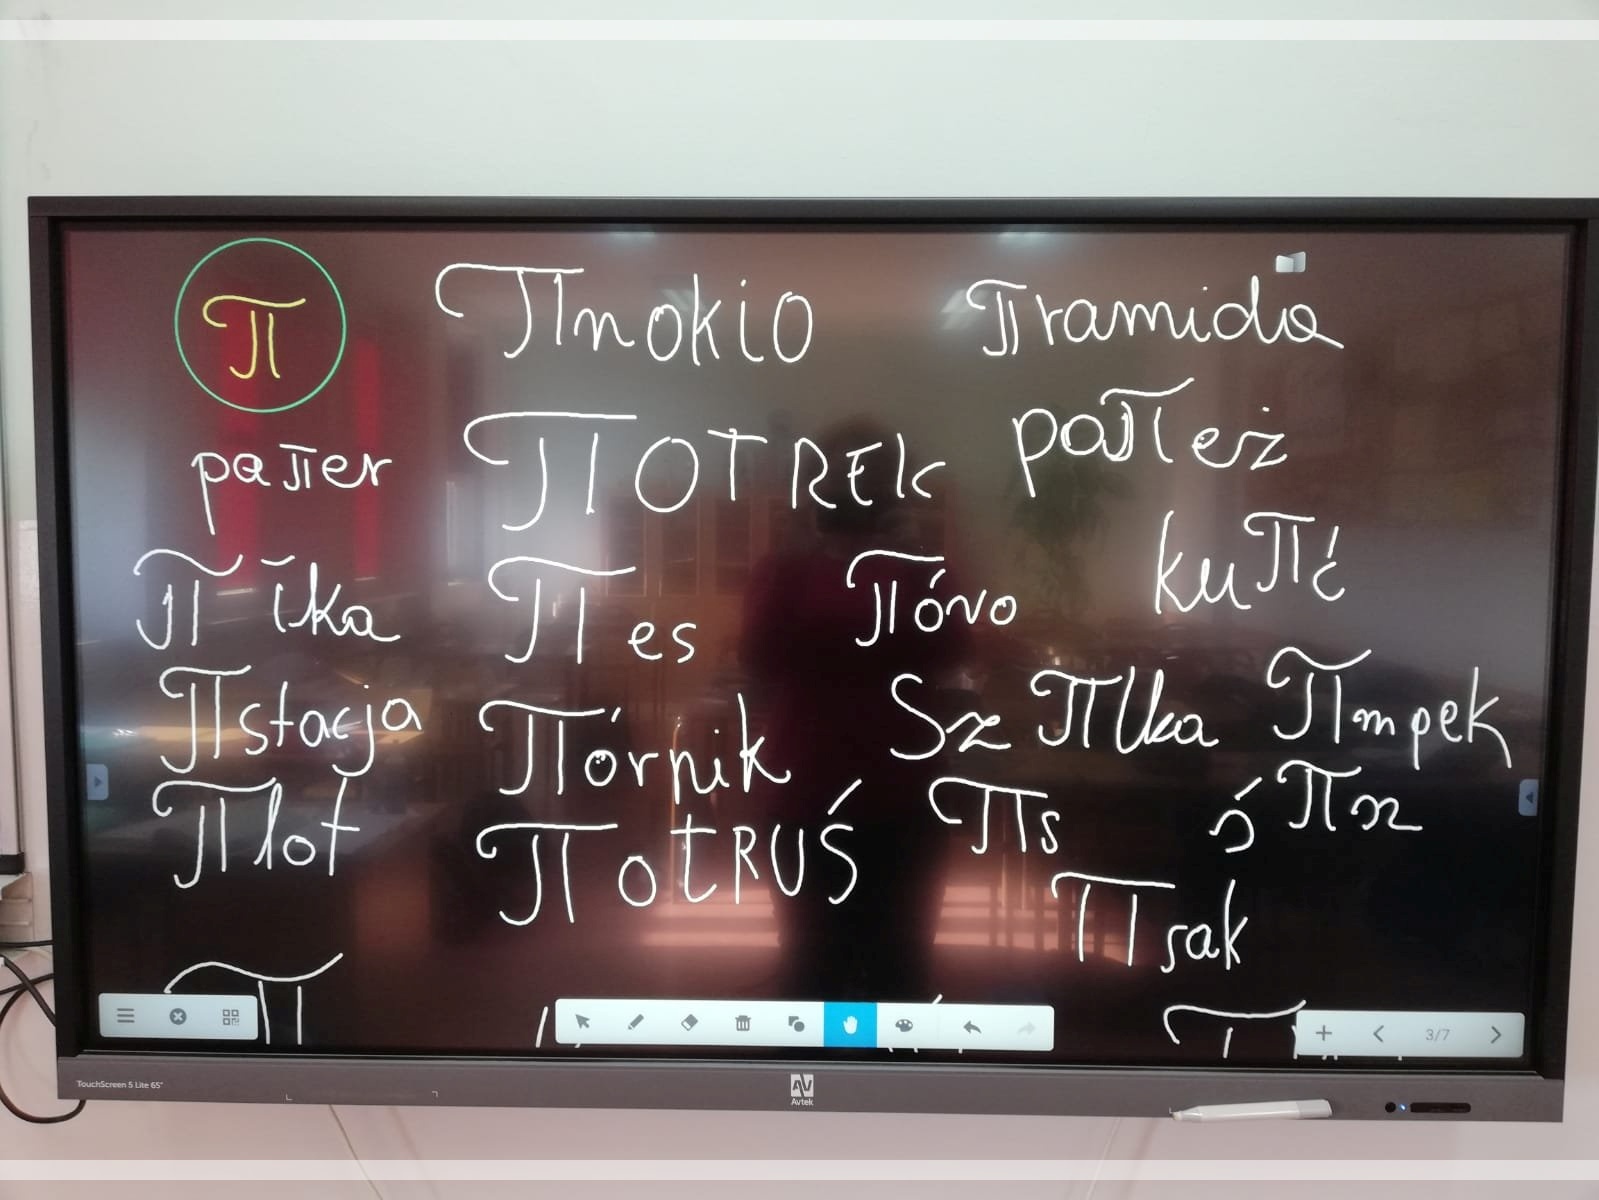 π πnokio πramida
paπer πOTREK paπeż
π ika π es πóvo kuπć
πstacja πórnik Sz πlka πmpek
πlot πotRUŚ πs ó πsz
πsak
π
3/7
TouchScreen 5 Lite 65"
Avtek